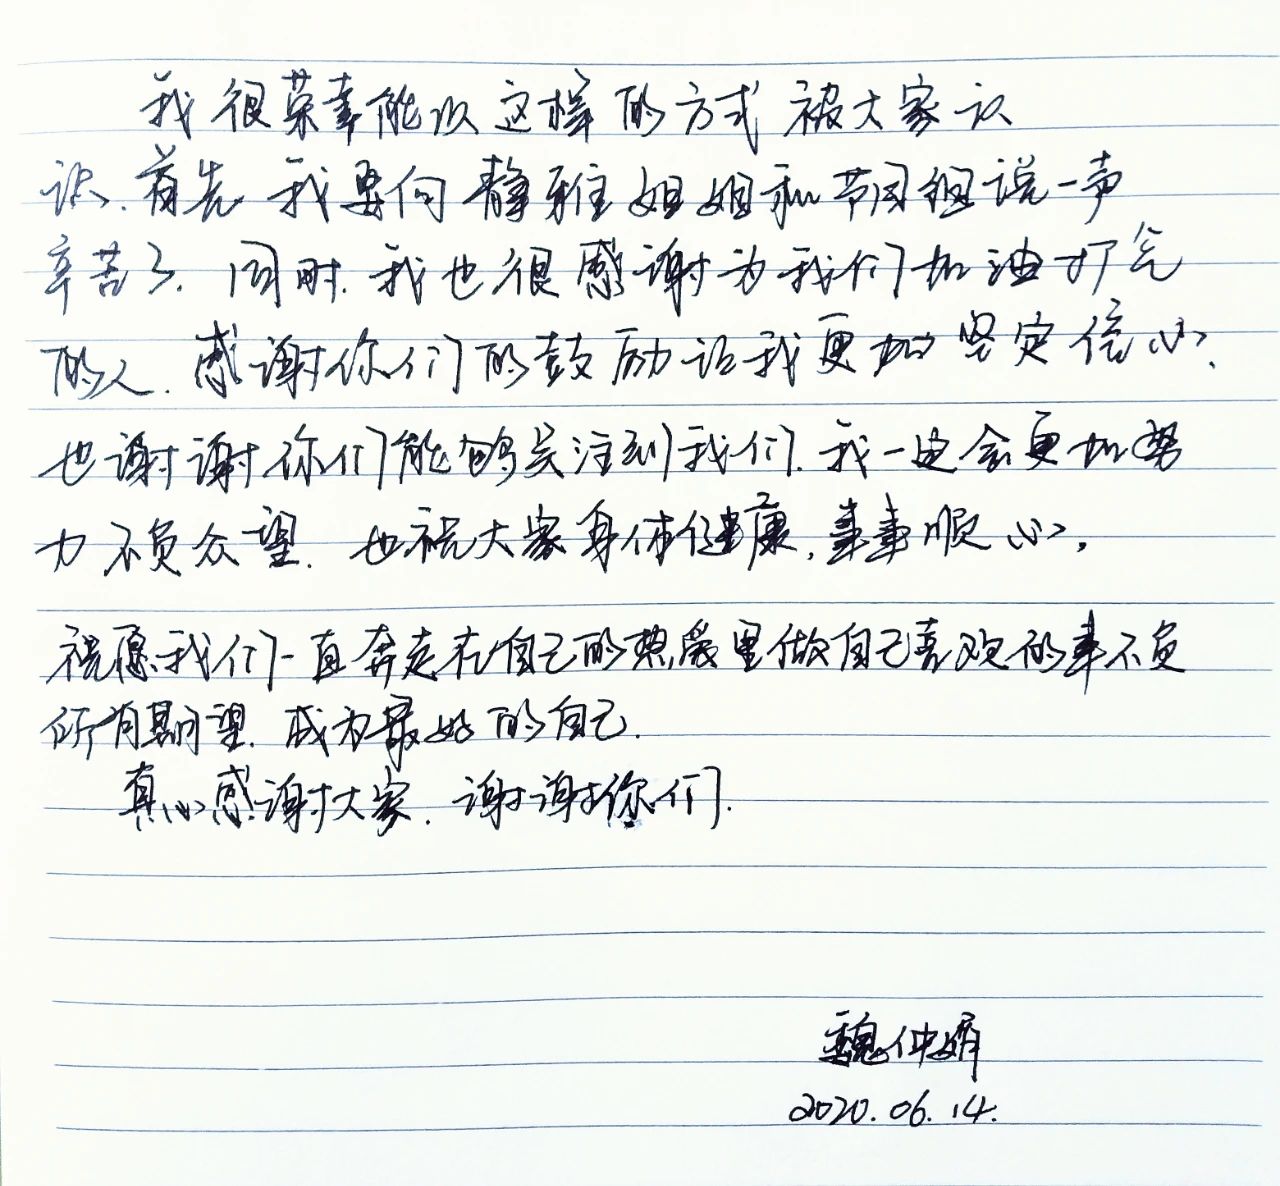 我很荣幸能以这样的方式被大家认
识.首先我要向静雅姐姐和节目组说一声
辛苦了.同时.我也很感谢为我们加油打气
的人.感谢你们的鼓励让我更加坚定信心.
也谢谢你们能够关注到我们.我一定会更加努
力不负众望.也祝大家身体健康,事事顺心,
祝愿我们一直奔走在自己的热爱里做自己喜欢的事不负
所有期望.成为最好的自己.
真心感谢大家.谢谢你们.
魏仲娟
2020.06.14.